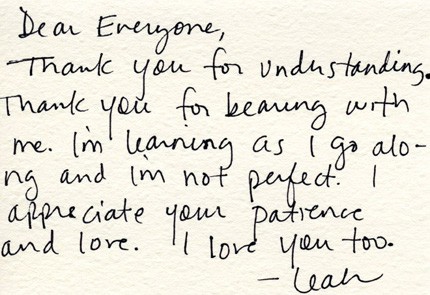 Dear Everyone,
Thank you for understanding.
Thank you for bearing with
me. I'm learning as I go alo-
ng and I'm not perfect. I
appreciate your patience
and love. I love you too.
- Leah